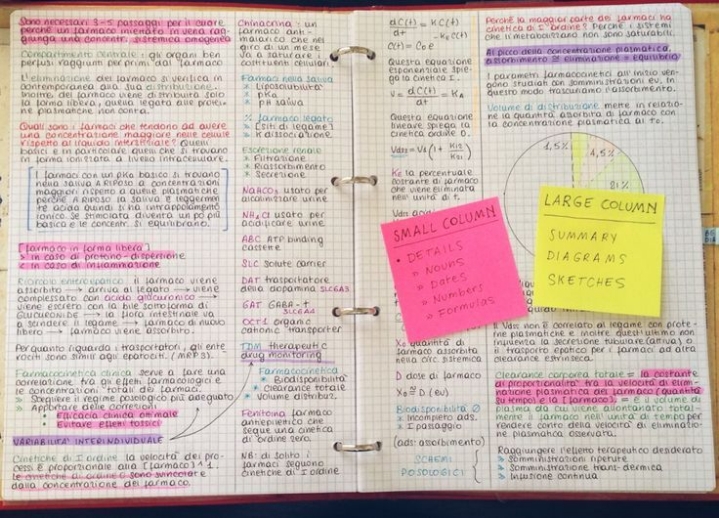 Sono necessari 3-5 passaggi per il cuore
perché un farmaco iniettato in vena rag-
giunga una concentr. sistemica omogenea
Compartimento centrale: gli organi ben
perfusi raggiunti per primi dal farmaco
L'eliminazione del farmaco si verifica in
contemporanea alla sua distribuzione.
Inoltre, del farmaco viene distribuita solo
la forma libera, quella legata alle protei-
ne plasmatiche non conta.
Quali sono i farmaci che tendono ad avere
una concentrazione maggiore nelle cellule
rispetto al liquido interstiziale? Quelli
basici e in particolare quelli che si trovano
in forma ionizzata a livello intracellulare.
I farmaci con un pKa basico si trovano
nella saliva A RIPOSO a concentrazioni
maggiori rispetto a quelle plasmatiche
perché A RIPOSO la saliva è leggermen
te acida quindi si ha intrappolamento
ionico. Se stimolata diventa un po' più
basica e le concentr. si equilibrano.
[farmaco in forma libera]
> in caso di protido-dispersione
< in caso di infiammazione
Circolo enteroepatico: il farmaco viene
assorbito → arriva al fegato → viene
complessato con acido glucuronico →
viene escreto con la bile sottoforma di
GLUCURONIDE → la flora intestinale va
a scindere il legame → farmaco di nuovo
libero → farmaco viene assorbito.
Per quanto riguarda i trasportatori, gli ente
rociti sono simili agli epatociti. (MRP3).
Farmacocinetica clinica serve a fare una
correlazione tra gli effetti farmacologici e
le concentrazioni totali del farmaco.
» Scegliere il regime posologico più adeguato
» Apportare delle correzioni
Efficacia clinica ottimale
Evitare effetti tossici
VARIABILITÀ INTERINDIVIDUALE
Cinetiche di I ordine la velocità dei pro-
cessi è proporzionale alla [farmaco]^1.
Le cinetiche di ordine 0 sono svincolate
dalla concentrazione del farmaco.
Chinacrina: un
farmaco anti-
malarico che nel
giro di un mese
va a saturare i
costituenti cellulari.
Farmaci nella saliva
* Liposolubilità
* pKa
* pH saliva
% farmaco legato
* [siti di legame]
* K dissociazione
Escrezione renale
* Filtrazione
* Riassorbimento
* Secrezione
NaHCO3 usato per
alcalinizzare urine
NH4Cl usato per
acidificare urine
ABC ATP binding
cassette
SLC solute carrier
DAT trasportatore
della dopamina SLC6A3
GAT GABA-t
SLC6A1
OCT1 organic
cationic transporter
TDM therapeutic
drug monitoring
Farmacocinetica
* Biodisponibilità
* Clearance totale
* Volume distribuz.
Fenitoina farmaco
antiepilettico che
segue una cinetica
di ordine zero.
NB: di solito i
farmaci seguono
cinetiche di I ordine
dC(t)/dt = KC(t)
-KeC(t)
C(t) = C0e
Questa equazione
esponenziale spie-
ga la cinetica I.
V = dC(t)/dt = KA
Questa equazione
lineare spiega la
cinetica ordine 0.
Ke la percentuale
costante di farmaco
che viene eliminata
nell'unità di t.
X0 quantità di
farmaco assorbita
nella circ. sistemica
D dose di farmaco
X0 = D (ev)
Biodisponibilità
* Incompleto ads.
* I passaggio
(ads: assorbimento)
SCHEMI
POSOLOGICI
Perché la maggior parte dei farmaci ha
cinetica di I ordine? Perché i sistemi
che li metabolizzano non sono saturabili.
Al picco della concentrazione plasmatica,
assorbimento ed eliminazione = equilibrio
I parametri farmacocinetici all'inizio ven-
gono studiati con somministrazioni EV. In
questo modo trascuriamo l'assorbimento.
Volume di distribuzione: mette in relazio-
ne la quantità assorbita di farmaco con
la concentrazione plasmatica al t0.
1,5%
4,5%
SMALL COLUMN
• DETAILS
» Nouns
» Dates
» Numbers
» Formulas
LARGE COLUMN
SUMMARY
DIAGRAMS
SKETCHES
Il Vdss non è correlato al legame con prote-
ine plasmatiche e inoltre quest'ultimo non
influenza la secrezione tubulare (attiva) o
il trasporto epatico per i farmaci ad alta
clearance estrinseca.
Clearance corporea totale = la costante
di proporzionalità tra la velocità di elimi-
nazione plasmatica del farmaco (quantità
su tempo) e la [farmaco] = è il volume di
plasma da cui viene allontanato total-
mente il farmaco nell'unità di tempo per
rendere conto della velocità di eliminazio-
ne plasmatica osservata.
Raggiungere l'effetto terapeutico desiderato
» Somministrazioni ripetute
» Somministrazione trans-dermica
» Infusione continua